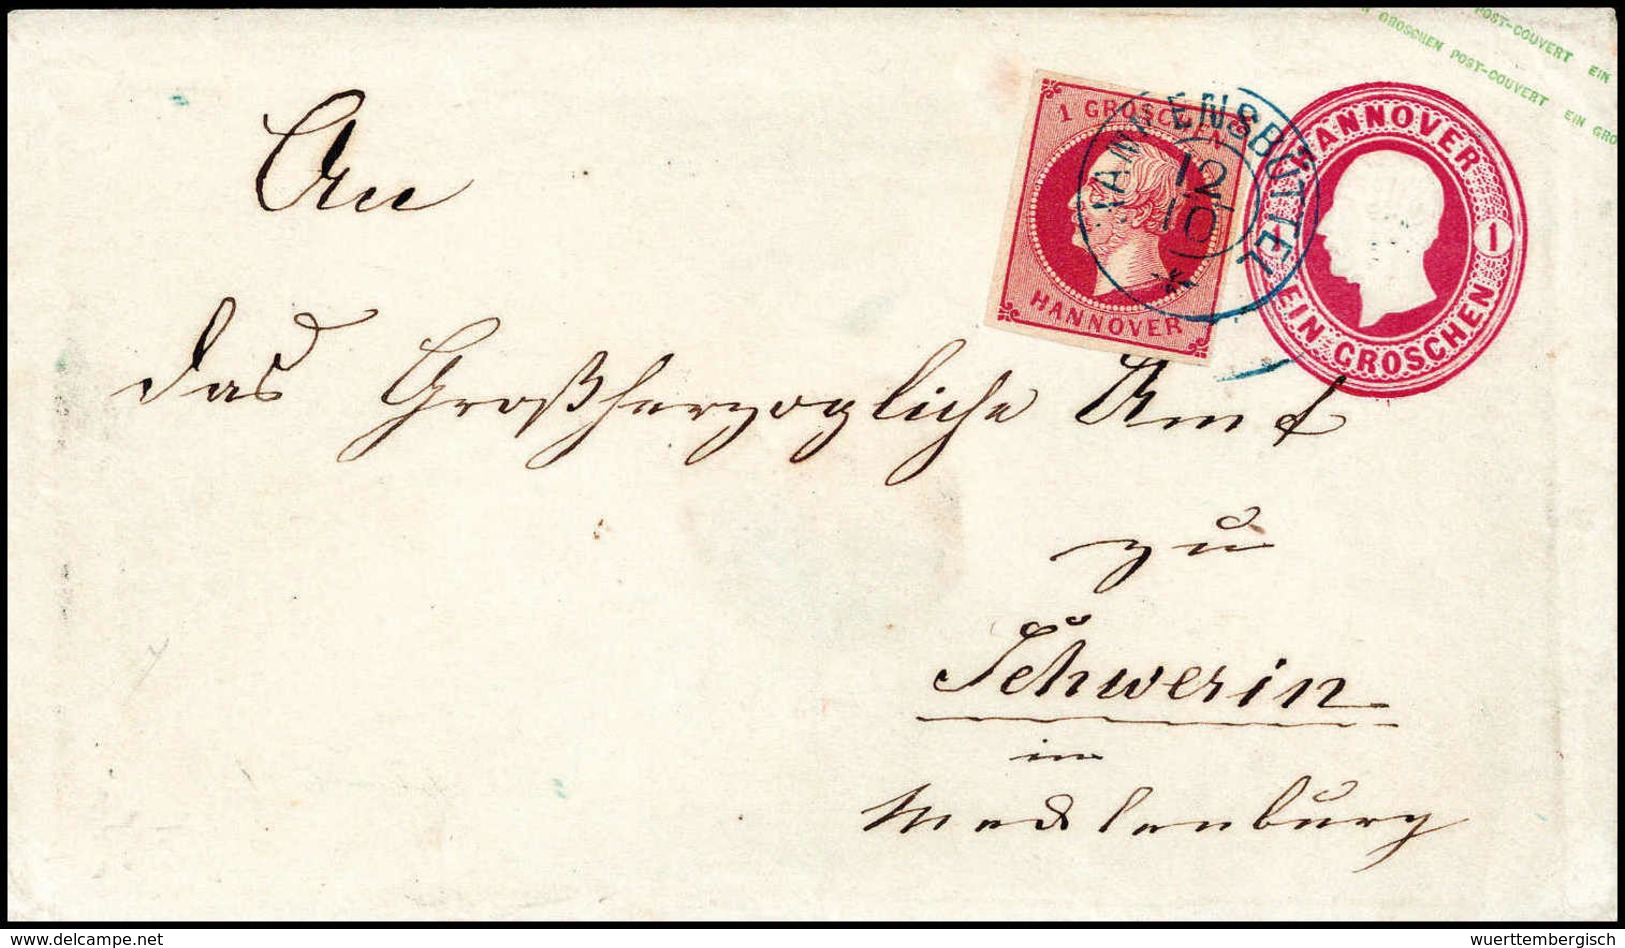 POST-COUVERT EIN
GROSCHEN POST-COUVERT EIN GRO
1 GROSCHEN
HANNOVER
ENSBÜTTEL
12
10
HANNOVER
1
EIN GROSCHEN
An
das Großherzogliche Amt
zu
Schwerin
in
Mecklenburg
www.delcampe.net
wuerttembergisch